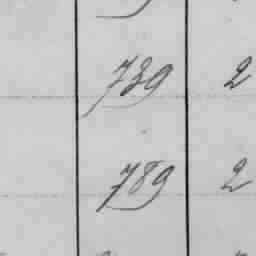 739 2
789 2